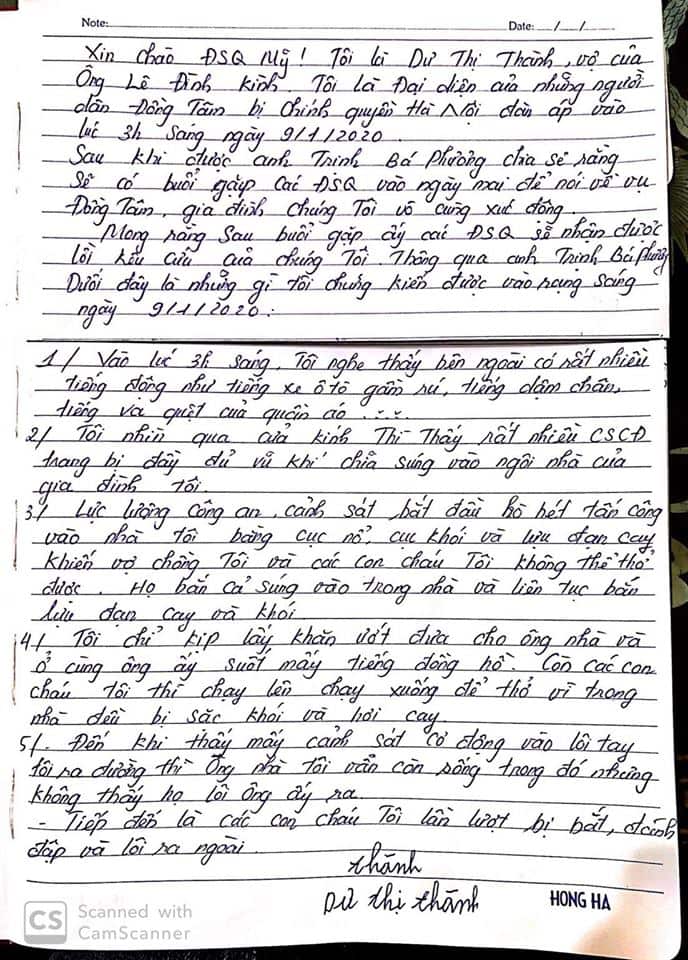 Note:
Date: __/__/__
Xin chào ĐSQ Mỹ! Tôi là Dư Thị Thành, vợ của
Ông Lê Đình Kình. Tôi là Đại diện của những người
dân Đồng Tâm bị Chính quyền Hà Nội đàn áp vào
lúc 3h sáng ngày 9/1/2020.
Sau khi được anh Trịnh Bá Phương chia sẻ rằng
Sẽ có buổi gặp các ĐSQ vào ngày mai để nói về vụ
Đồng Tâm, gia đình chúng Tôi vô cùng xúc động.
Mong rằng Sau buổi gặp ấy các ĐSQ sẽ nhận được
lời kêu cứu của chúng Tôi Thông qua anh Trịnh Bá Phương
Dưới đây là những gì tôi chứng kiến được vào rạng sáng
ngày 9/1/2020:
1/ Vào lúc 3h sáng, Tôi nghe thấy bên ngoài có rất nhiều
tiếng động như tiếng xe ô tô gầm rú, tiếng dậm chân,
tiếng va quệt của quần áo .....
2/ Tôi nhìn qua cửa kính Thì Thấy rất nhiều CSCĐ
trang bị đầy đủ vũ khí chĩa súng vào ngôi nhà của
gia đình tôi.
3/ Lực lượng công an, cảnh sát bắt đầu hò hét tấn công
vào nhà tôi bằng cục nổ, cục khói và lựu đạn cay
khiến vợ chồng Tôi và các con cháu Tôi không thể thở
được. Họ bắn cả súng vào trong nhà và liên tục bắn
lựu đạn cay và khói.
4/ Tôi chỉ kịp lấy khăn ướt đưa cho ông nhà và
ở cùng ông ấy suốt mấy tiếng đồng hồ. Còn các con
cháu tôi thì chạy lên chạy xuống để thở vì trong
nhà đều bị sặc khói và hơi cay.
5/. Đến khi thấy mấy cảnh sát cơ động vào lôi tay
tôi ra đường thì Ông nhà Tôi vẫn còn sống trong đó nhưng
không thấy họ lôi ông ấy ra.
- Tiếp đến là các con cháu Tôi lần lượt bị bắt, đánh
đập và lôi ra ngoài.
thành
Dư thị thành
HONG HA
CS Scanned with
CamScanner